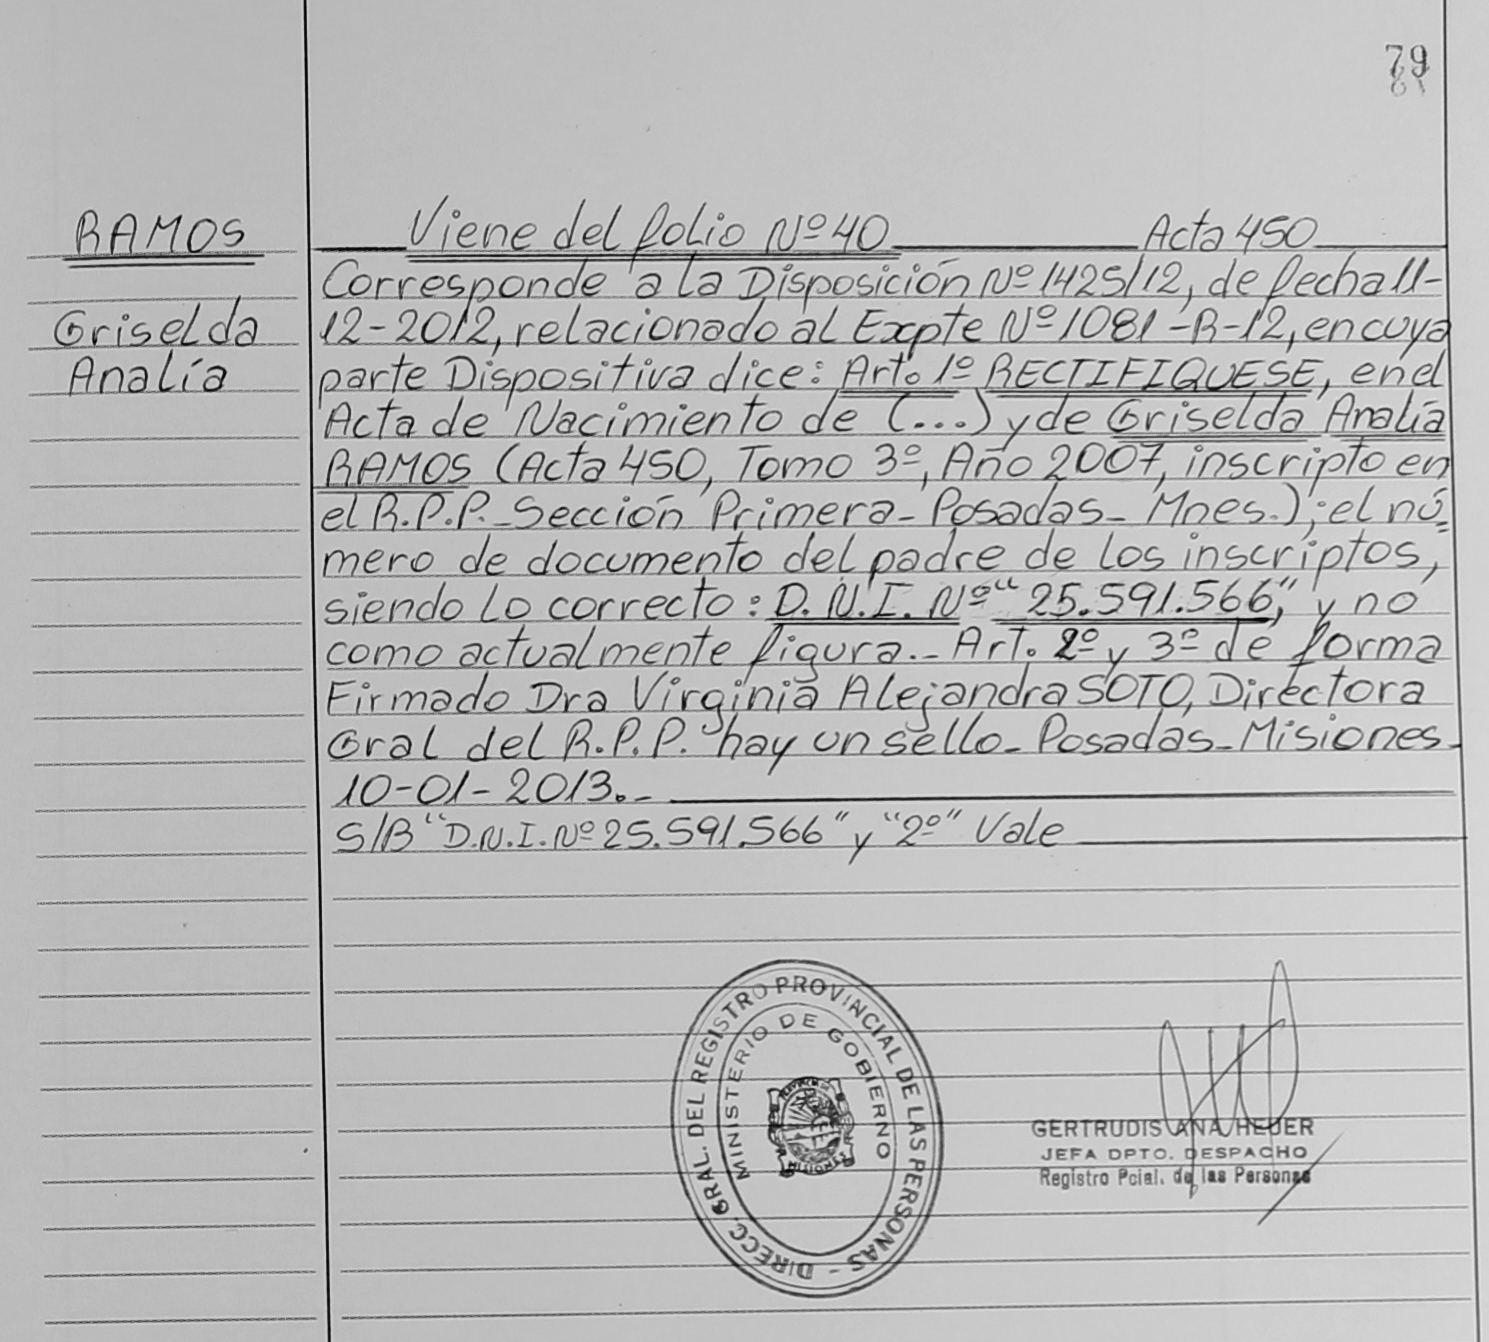 79
RAMOS
Griselda
Analía
Viene del folio Nº 40 Acta 450
Corresponde a la Disposición Nº 1425/12, de fecha 11-
12-2012, relacionado al Expte Nº 1081-R-12, en cuya
parte Dispositiva dice: Art. 1º RECTIFIQUESE, en el
Acta de Nacimiento de (...) y de Griselda Analía
RAMOS (Acta 450, Tomo 3º, Año 2007, inscripto en
el R.P.P.-Sección Primera-Posadas-Mnes.); el nú-
mero de documento del padre de los inscriptos,
siendo lo correcto: D.N.I. Nº "25.591.566," y no
como actualmente figura.- Art. 2º y 3º de forma
Firmado Dra Virginia Alejandra SOTO, Directora
Gral del R.P.P. hay un sello-Posadas-Misiones-
10-01-2013.-
S/B "D.N.I. Nº 25.591.566" y "2º" Vale
DIRECC. GRAL. DEL REGISTRO PROVINCIAL DE LAS PERSONAS -
MINISTERIO DE GOBIERNO
MISIONES
GERTRUDIS ANA HEUER
JEFA DPTO. DESPACHO
Registro Pcial. de las Personas